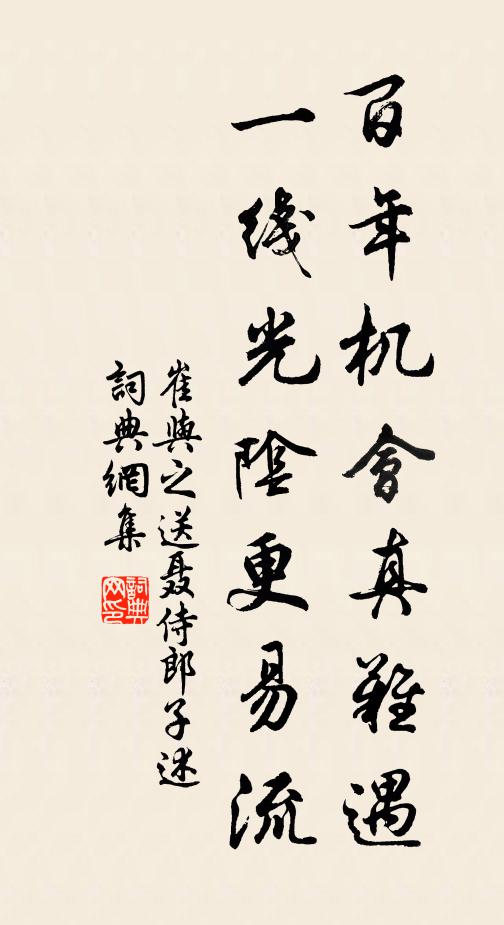 百年机會真難遇
一綫光陰更易流
崔與之送聂侍郎子述
詞典網集
詞典網印